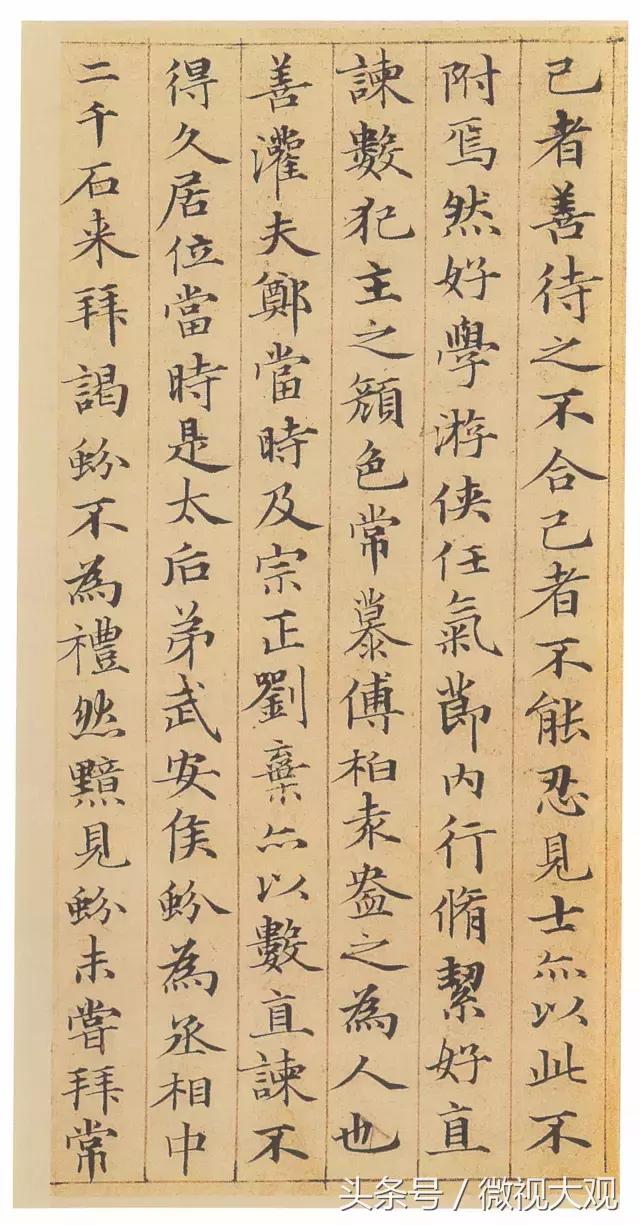 己者善待之不合己者不能忍見士亦以此不
附焉然好學游俠任氣節內行脩絜好直
諫數犯主之顏色常慕傅柏袁盎之為人也
善灌夫鄭當時及宗正劉棄亦以數直諫不
得久居位當時是太后弟武安侯蚡為丞相中
二千石来拜謁蚡不為禮然黯見蚡未嘗拜常
头条号／微视大观